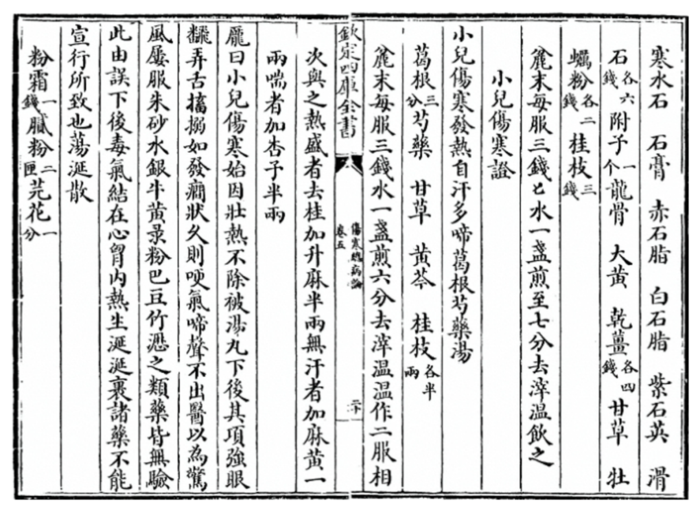 寒水石 石膏 赤石脂 白石脂 紫石英 滑
石各六錢 附子一个 龍骨 大黄 乾薑各四錢 甘草 牡
蠣粉各二錢 桂枝三錢
麄末每服三錢匕水一盞煎至七分去滓温飲之
小兒傷寒證
小兒傷寒發熱自汗多啼葛根芍藥湯
葛根三分 芍藥 甘草 黄芩 桂枝各半兩
麄末每服三錢水一盞煎六分去滓温温作二服相
欽定四庫全書
傷寒總病論
卷五
二十
次與之熱盛者去桂加升麻半兩無汗者加麻黄一
兩喘者加杏子半兩
龐曰小兒傷寒始因壯熱不除被湯丸下後其項強眼
飜弄舌搐搦如發癎狀久則哽氣啼聲不出醫以為驚
風屢服朱砂水銀牛黄景粉巴豆竹瀝之類藥皆無驗
此由誤下後毒氣結在心胷内熱生涎涎裹諸藥不能
宣行所致也蕩涎散
粉霜一錢 膩粉二匣 芫花一分